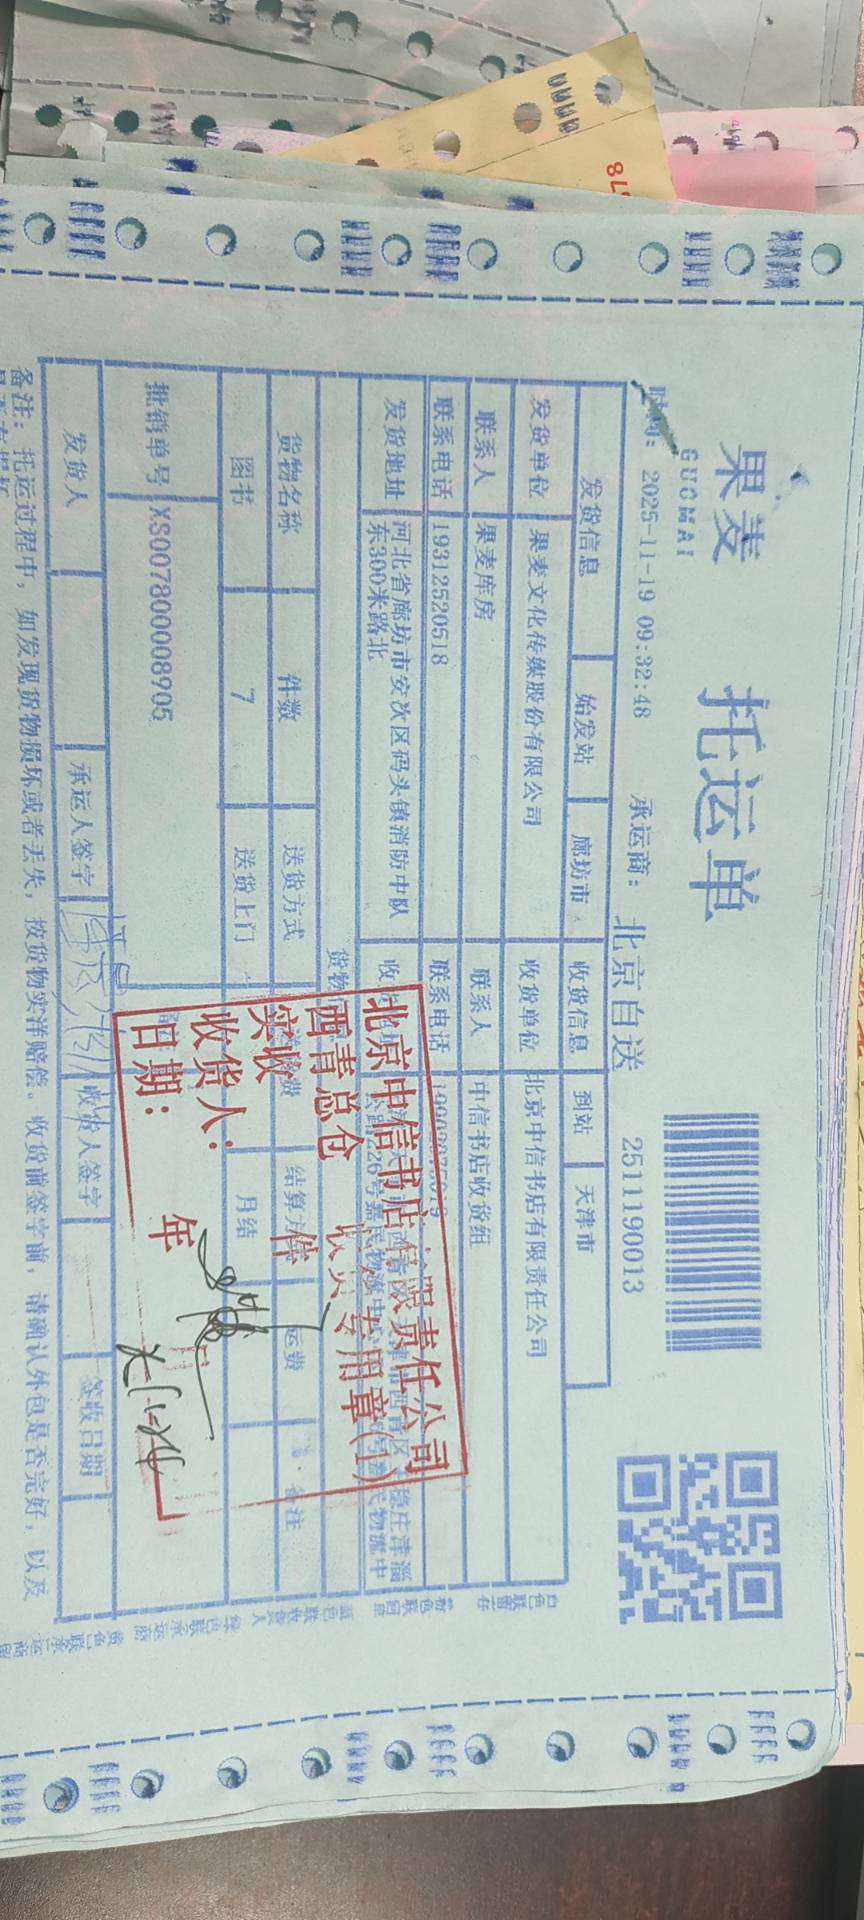 果麦
GUOMAI
托运单
时间: 2025-11-19 09:32:48 承运商: 北京自送 2511190013
发货信息 始发站 廊坊市 收货信息 到站 天津市
发货单位 果麦文化传媒股份有限公司 收货单位 北京中信书店有限责任公司
联系人 果麦库房 联系人 中信书店收货组
联系电话 19312520518 联系电话
发货地址 河北省廊坊市安次区码头镇消防中队东300米路北
货物名称 件数 送货方式 结算方 运费 备注
图书 7 送货上门 月结
批销单号 XS007800008905
发货人 承运人签字 收货人签字 签收日期
备注: 托运过程中, 如发现货物损坏或者丢失, 按货物实洋赔偿。收货前签字前, 请确认外包是否完好, 以及
北京中信书店有限责任公司
西青总仓 收货专用章(1)
实收 件
收货人:
日期: 年